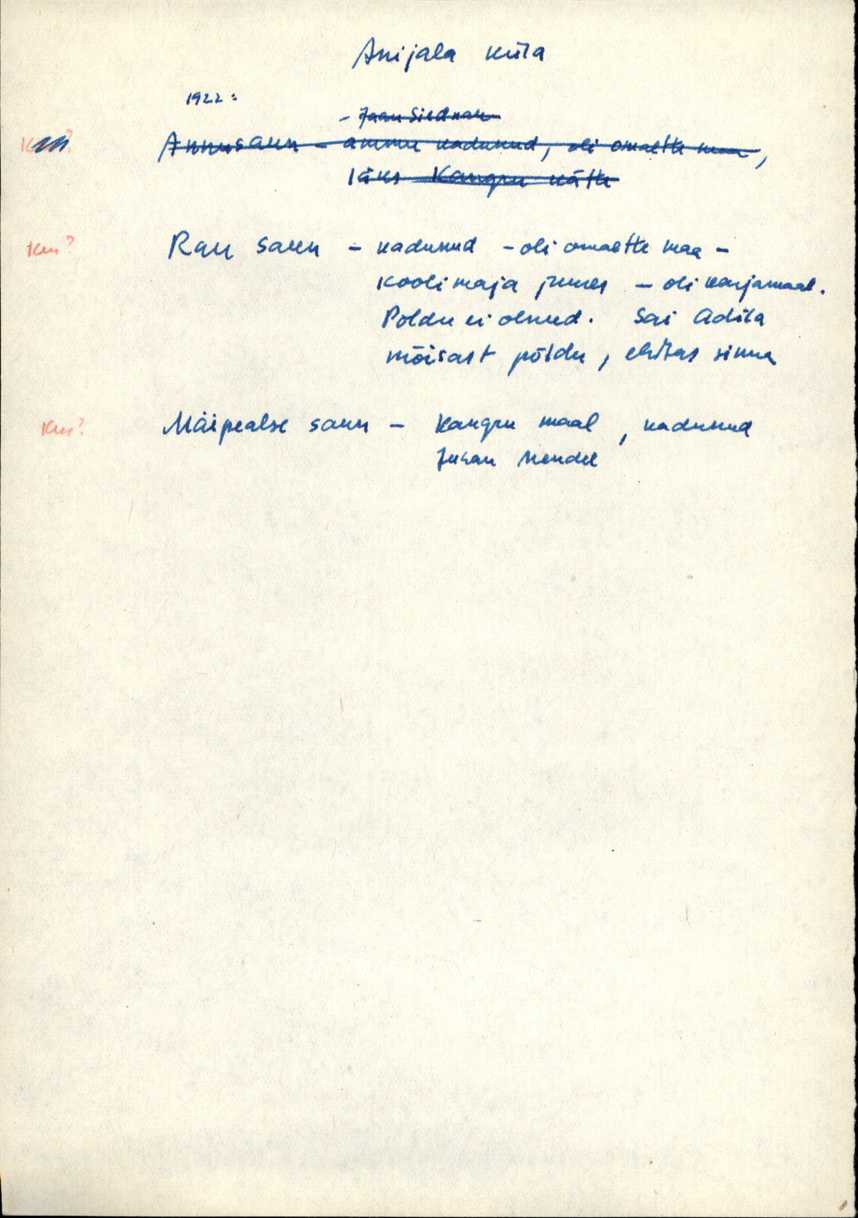 Anijala küla
1922:
- Jaan Siedman
Annusaun - ammu kadunud, oli omaette maa,
läks Kangru kätte
Km? Rau saun - kadunud - oli omaette maa -
koolimaja juures - oli karjamaal.
Põldu ei olnud. Sai Adila
mõisast põldu, ehitas sinna
Km? Mäipealse saun - Kangru maal, kadunud
Juhan Mendel